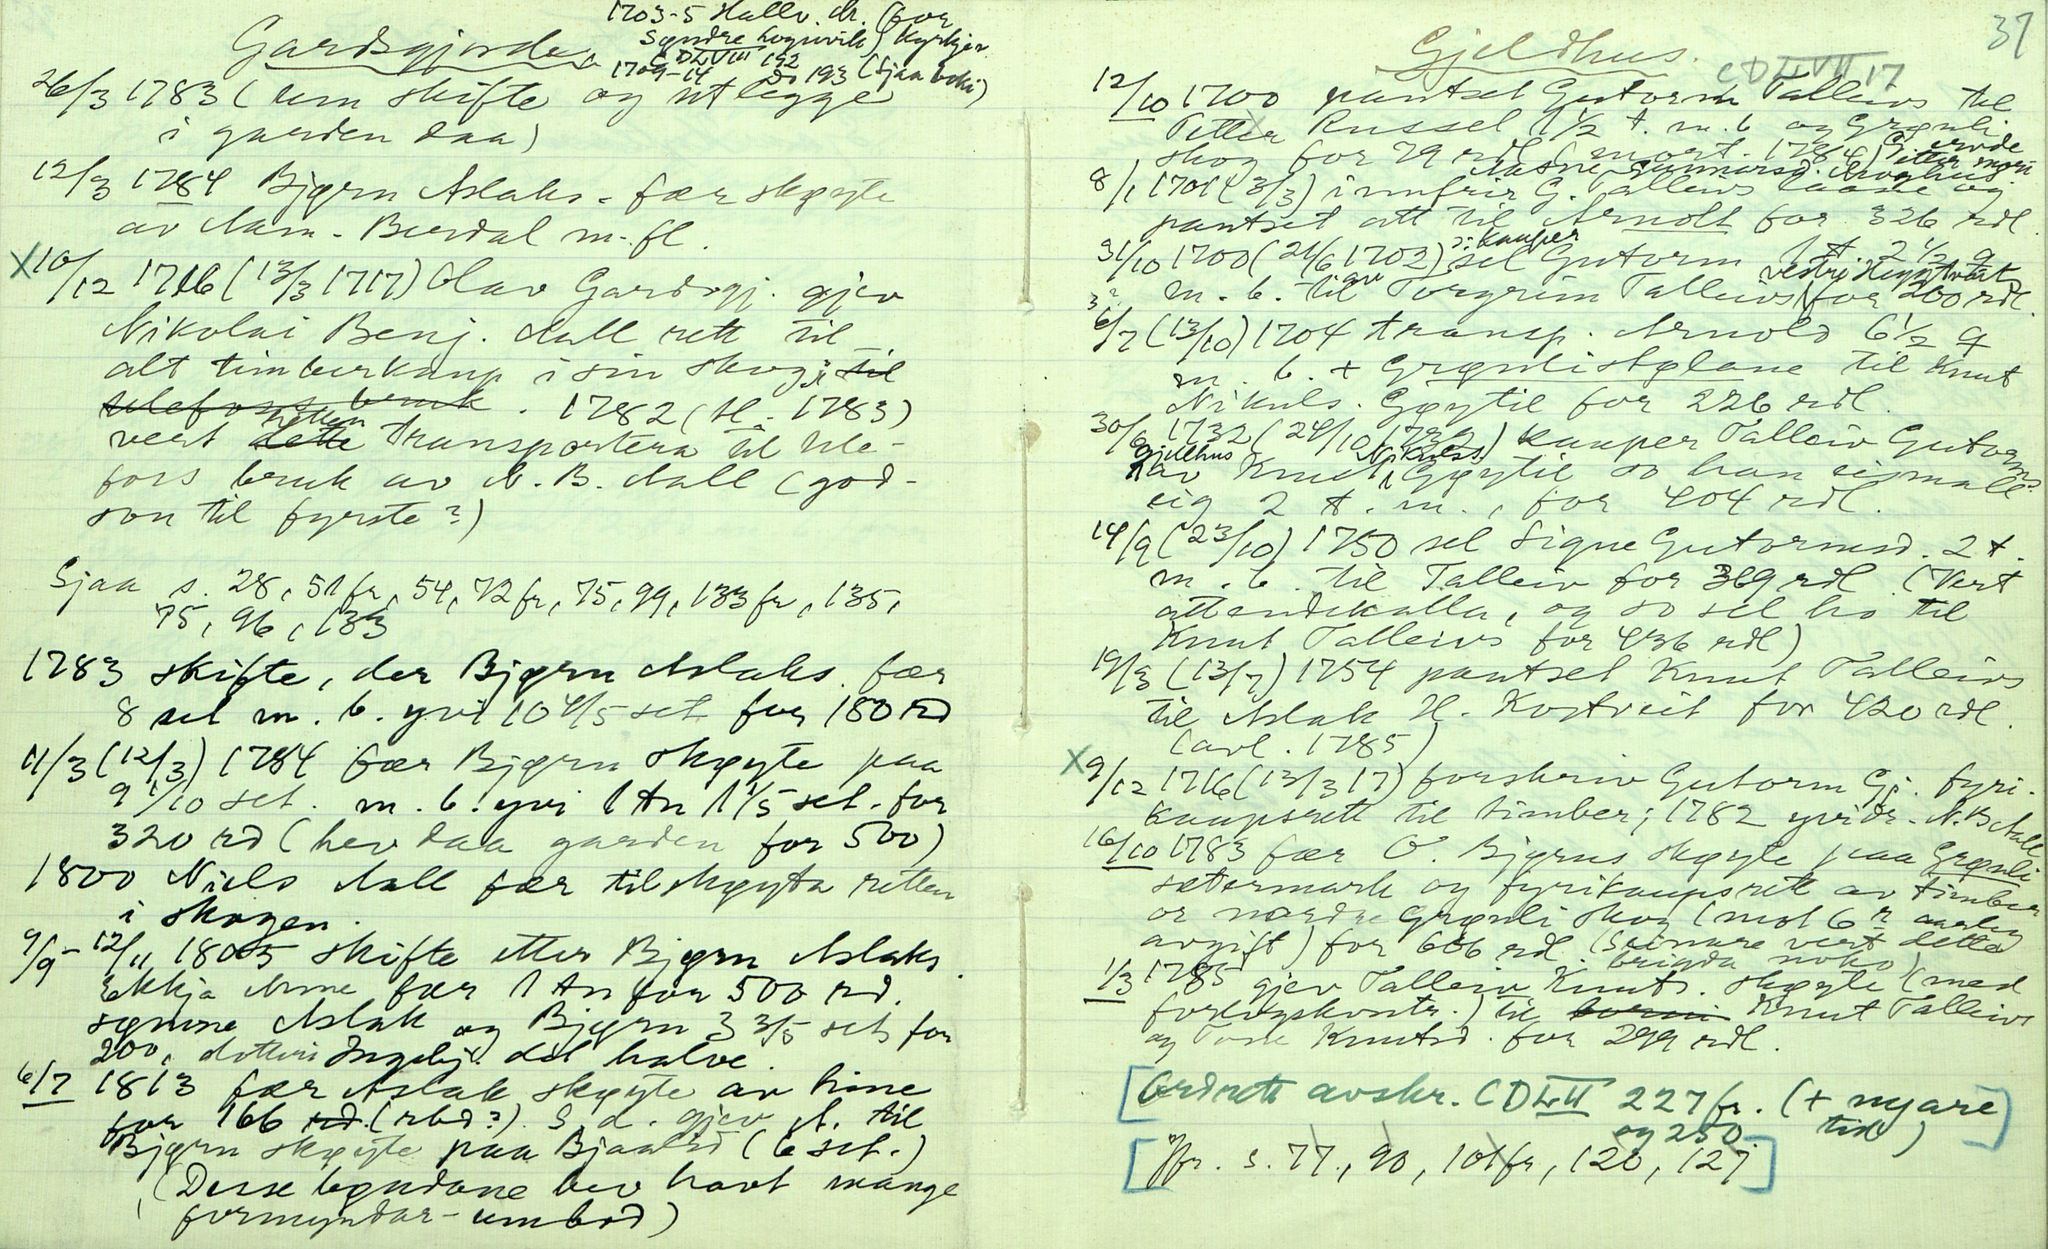 1703-5 Hallv. A. (for
Syndre Lognvik) kyrkjer
CDLVIII 192
1709-14 do 193 (Sjaa boki)
Gardsgjorden
26/3 1783 (um skifte og utlegge
i garden daa)
12/3 1784 Bjørn Aslaks. fær skøyte
av Aam. Berdal m. fl.
X 10/12 1716 (13/3 1717) Olav Gardsgj. gjev
Nikolai Benj. Aall rett til
alt timberkaup i sin skog, til
Ulefoss bruk. 1782 (tl. 1783)
vert dette retten transportera til Ule-
foss bruk av N. B. Aall (god-
son til fyrste?)
Sjaa s. 28, 51 fr, 54, 72 fr, 75, 99, 133 fr, 135,
75, 96, 133
1783 skifte, der Bjørn Aslaks. fær
8 set m. b. yvi 10 4/5 set for 180 rd
11/3 (12/3) 1784 fær Bjørn skøyte paa
9 1/10 set. m. b. yvi 1 tn 1 1/5 set. for
320 rd (hev daa garden for 500)
1800 Niels Aall fær tilskøyta retten
i skogen.
9/9 - 12/11 1805 skifte etter Bjørn Aslaks.
Ekkja Anne fær 1 tn for 500 rd.
sønine Aslak og Bjørn 3 3/5 set for
200, dotteri Ingebj. det halve.
6/7 1813 fær Aslak skøyte av hine
for 166 rd. (rbd?). S. d. gjev A. til
Bjørn skøyte paa Bjaalid (6 set.)
(Desse bøndane hev havt mange
formyndar-umbod)
37
Gjeldhus.
CDLVII 17
12/10 1700 pantset Gutorm Talleivs til
Petter Russel 1 1/2 t. m. b. og Grønli
skog for 79 rdl (mort. 1784)
8/1 1701 (3/3) innfrir G. Talleivs laane og
pantset att til Arnolt for 326 rdl.
31/10 1700 (21/6 1702) sel Gutorm 1 t. 2 1/2 q
ɔ: kauper
m. b. til av Torgrim Talleivs vestre for 200 rdl.
6/7 (13/10) 1704 transp. Arnold 6 1/2 q
m. b. + Grønlistølane til Knut
Nikuls. Gøytil for 226 rdl.
30/6 1732 (24/10 1732) kauper Talleiv Gutorms.
Gjellhus av Knut Nikuls. Gøytil so han eismall
eig 2 t. m., for 404 rdl.
14/9 (23/10) 1750 sel Signe Gutormsd. 2 t.
m. b. til Talleiv for 369 rdl. (Vert
attendekalla, og so sel ho til
Knut Talleivs for 436 rdl)
19/3 (13/7) 1754 pantset Knut Talleivs
til Aslak H. Kostveit for 420 rdl.
(avl. 1785)
X 9/12 1716 (13/3 17) forskriv Gutorm Gj. fyri-
kaupsrett til timber; 1782 yvidr. N. B. Aall.
16/10 1783 fær O. Bjørns skøyte paa Grønli
sætermark og fyrikaupsrett av timber
or nordre Grønli skog (mot 6 r aarleg
avgift) for 606 rdl. (Seinare vert dette
brigda noko)
1/3 1785 gjev Talleiv Knuts. skøyte (med
forlogskontr.) til borni Knut Talleivs
og Tone Knutsd. for 299 rdl.
[Ordrett avskr. CDLII 227 fr. (+ nyare
og 250 tid)]
[Jfr. s. 77, 90, 101 fr, 120, 127]